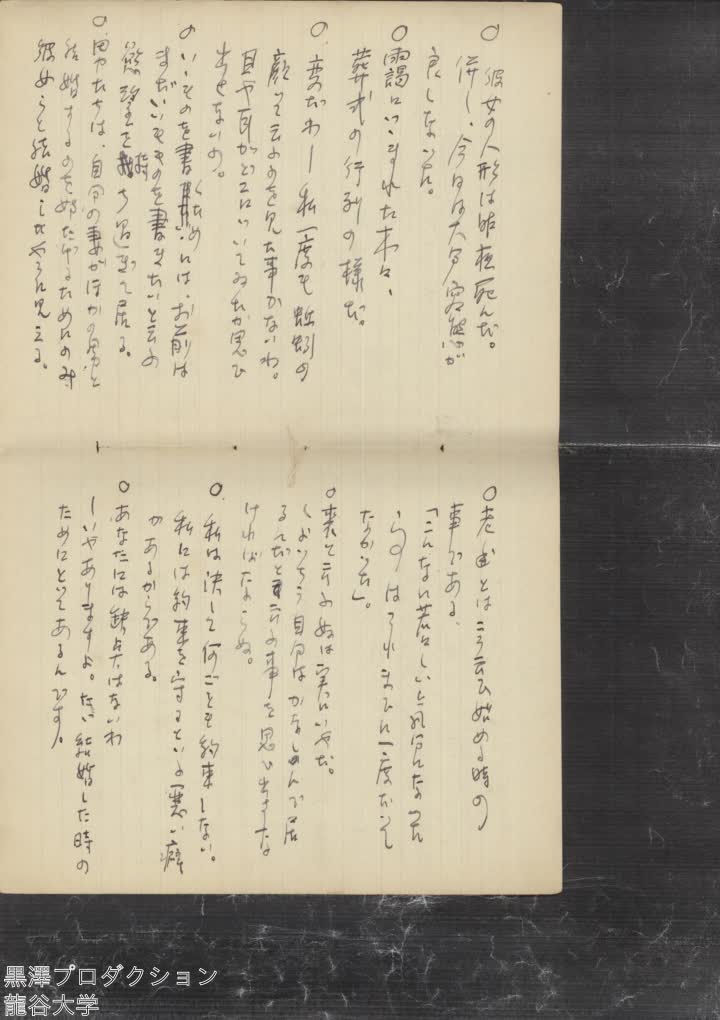 ○ 彼女の人形は昨夜死んだ。
併し、今日は大分容態が
良しない。
○ 雨謁にいこまれた木は、
葬式の行列の様だ。
○ 変だわー私一度も蚯蚓の
顔と云ふのを見た事がないわ。
目や耳がどこにいてゐたか思ひ
出せないの。
○ いゝものを書くためには、お前は
まだいゝものを書きたいと云ふ
慾望を持ち過ぎて居る。
○ 男たちは、自分の妻がほかの男と
結婚するのを妨たげるためにのみ
彼女らと結婚したやうに見える。
○ 老年とはこう云ひ始める時の
事である、
「こんなに若々しい気分になった
のはこれまでに一度だって
なかった」。
○ 喪と云ふ奴は実にいやだ。
しよつちう自分はかなしんで居
るんだと云ふ事を思ひ出さな
ければならぬ。
○ 私は決して何ごとも約束しない。
私には約束を守るといふ悪い癖
があるからである。
○ あなたには缺点はないわ
ーいやありますよ。たゞ結婚した時の
ためにとってあるんです。
黒澤プロダクション
龍谷大学